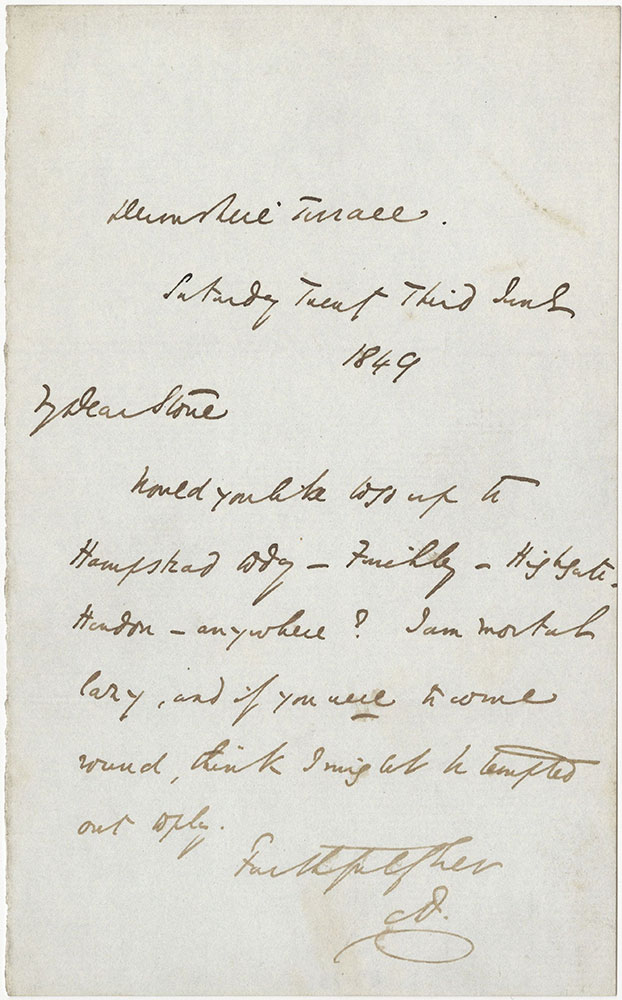 Devonshire Terrace.
Saturday Twenty Third June
1849
My Dear Stone
Would you like to go up to
Hampstead today – Finchley – Highgate –
Hendon – anywhere? I am mortal
lazy, and if you were to come
round, think I might be tempted
out to play.
Faithfully Ever
CD.